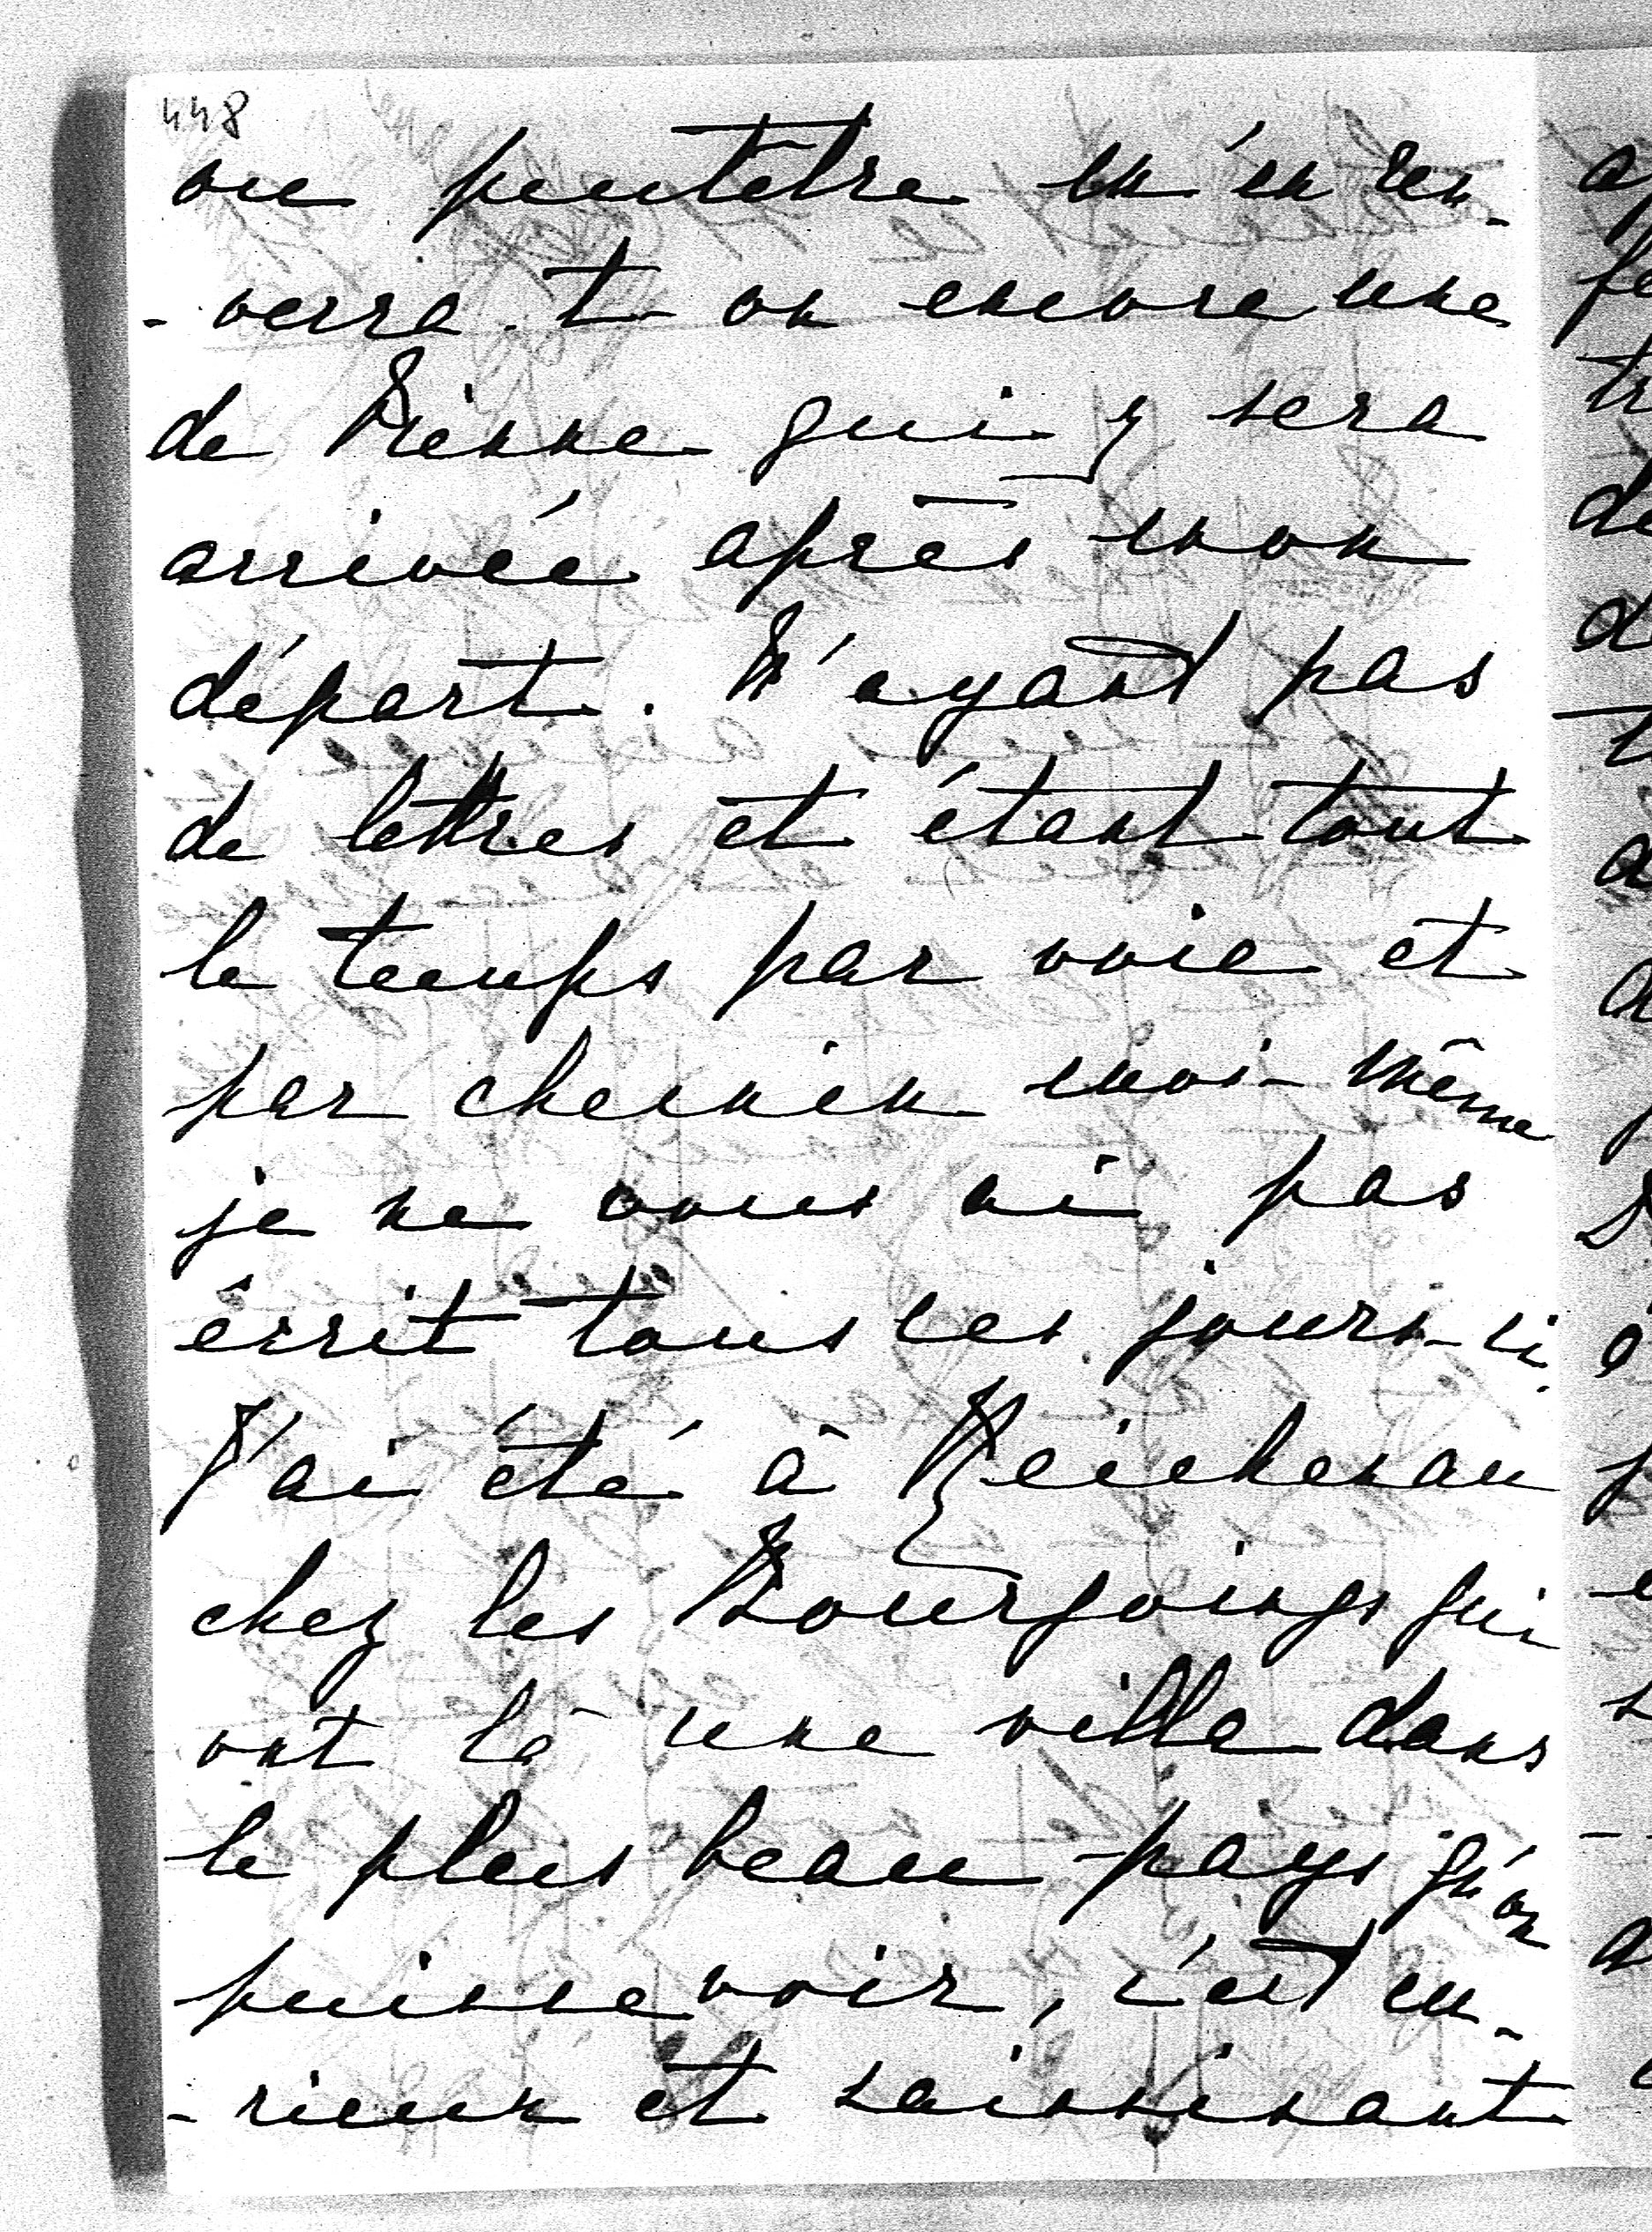 448
ou peutêtre m'en ren-
-verra-t-on encore une
de Vienne qui y sera
arrivée après mon
départ. N'ayant pas
de lettres et étant tout
le temps par voie et
par chemin moi-même
je ne vous ai pas
écrit tous ces jours-ci.
J'ai été à Reichenau
chez les Bourgoings qui
ont là une villa dans
le plus beau pays qu'on
puisse voir, c'est cu-
-rieux et saisissant